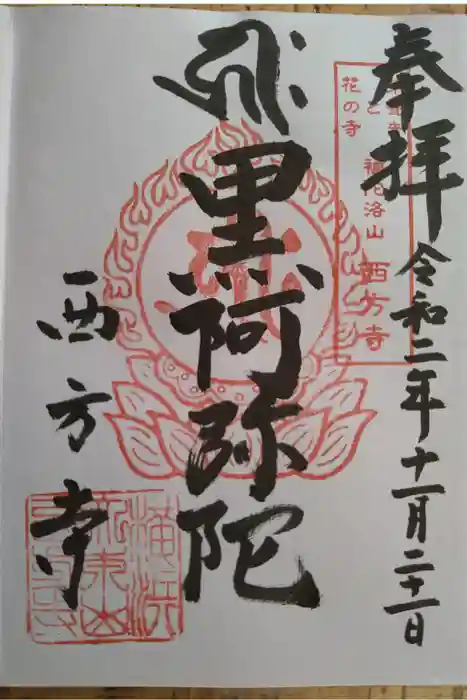 奉拝
令和二年十一月二十一日
花の寺
補陀洛山
西方寺
黒阿弥陀
西方寺